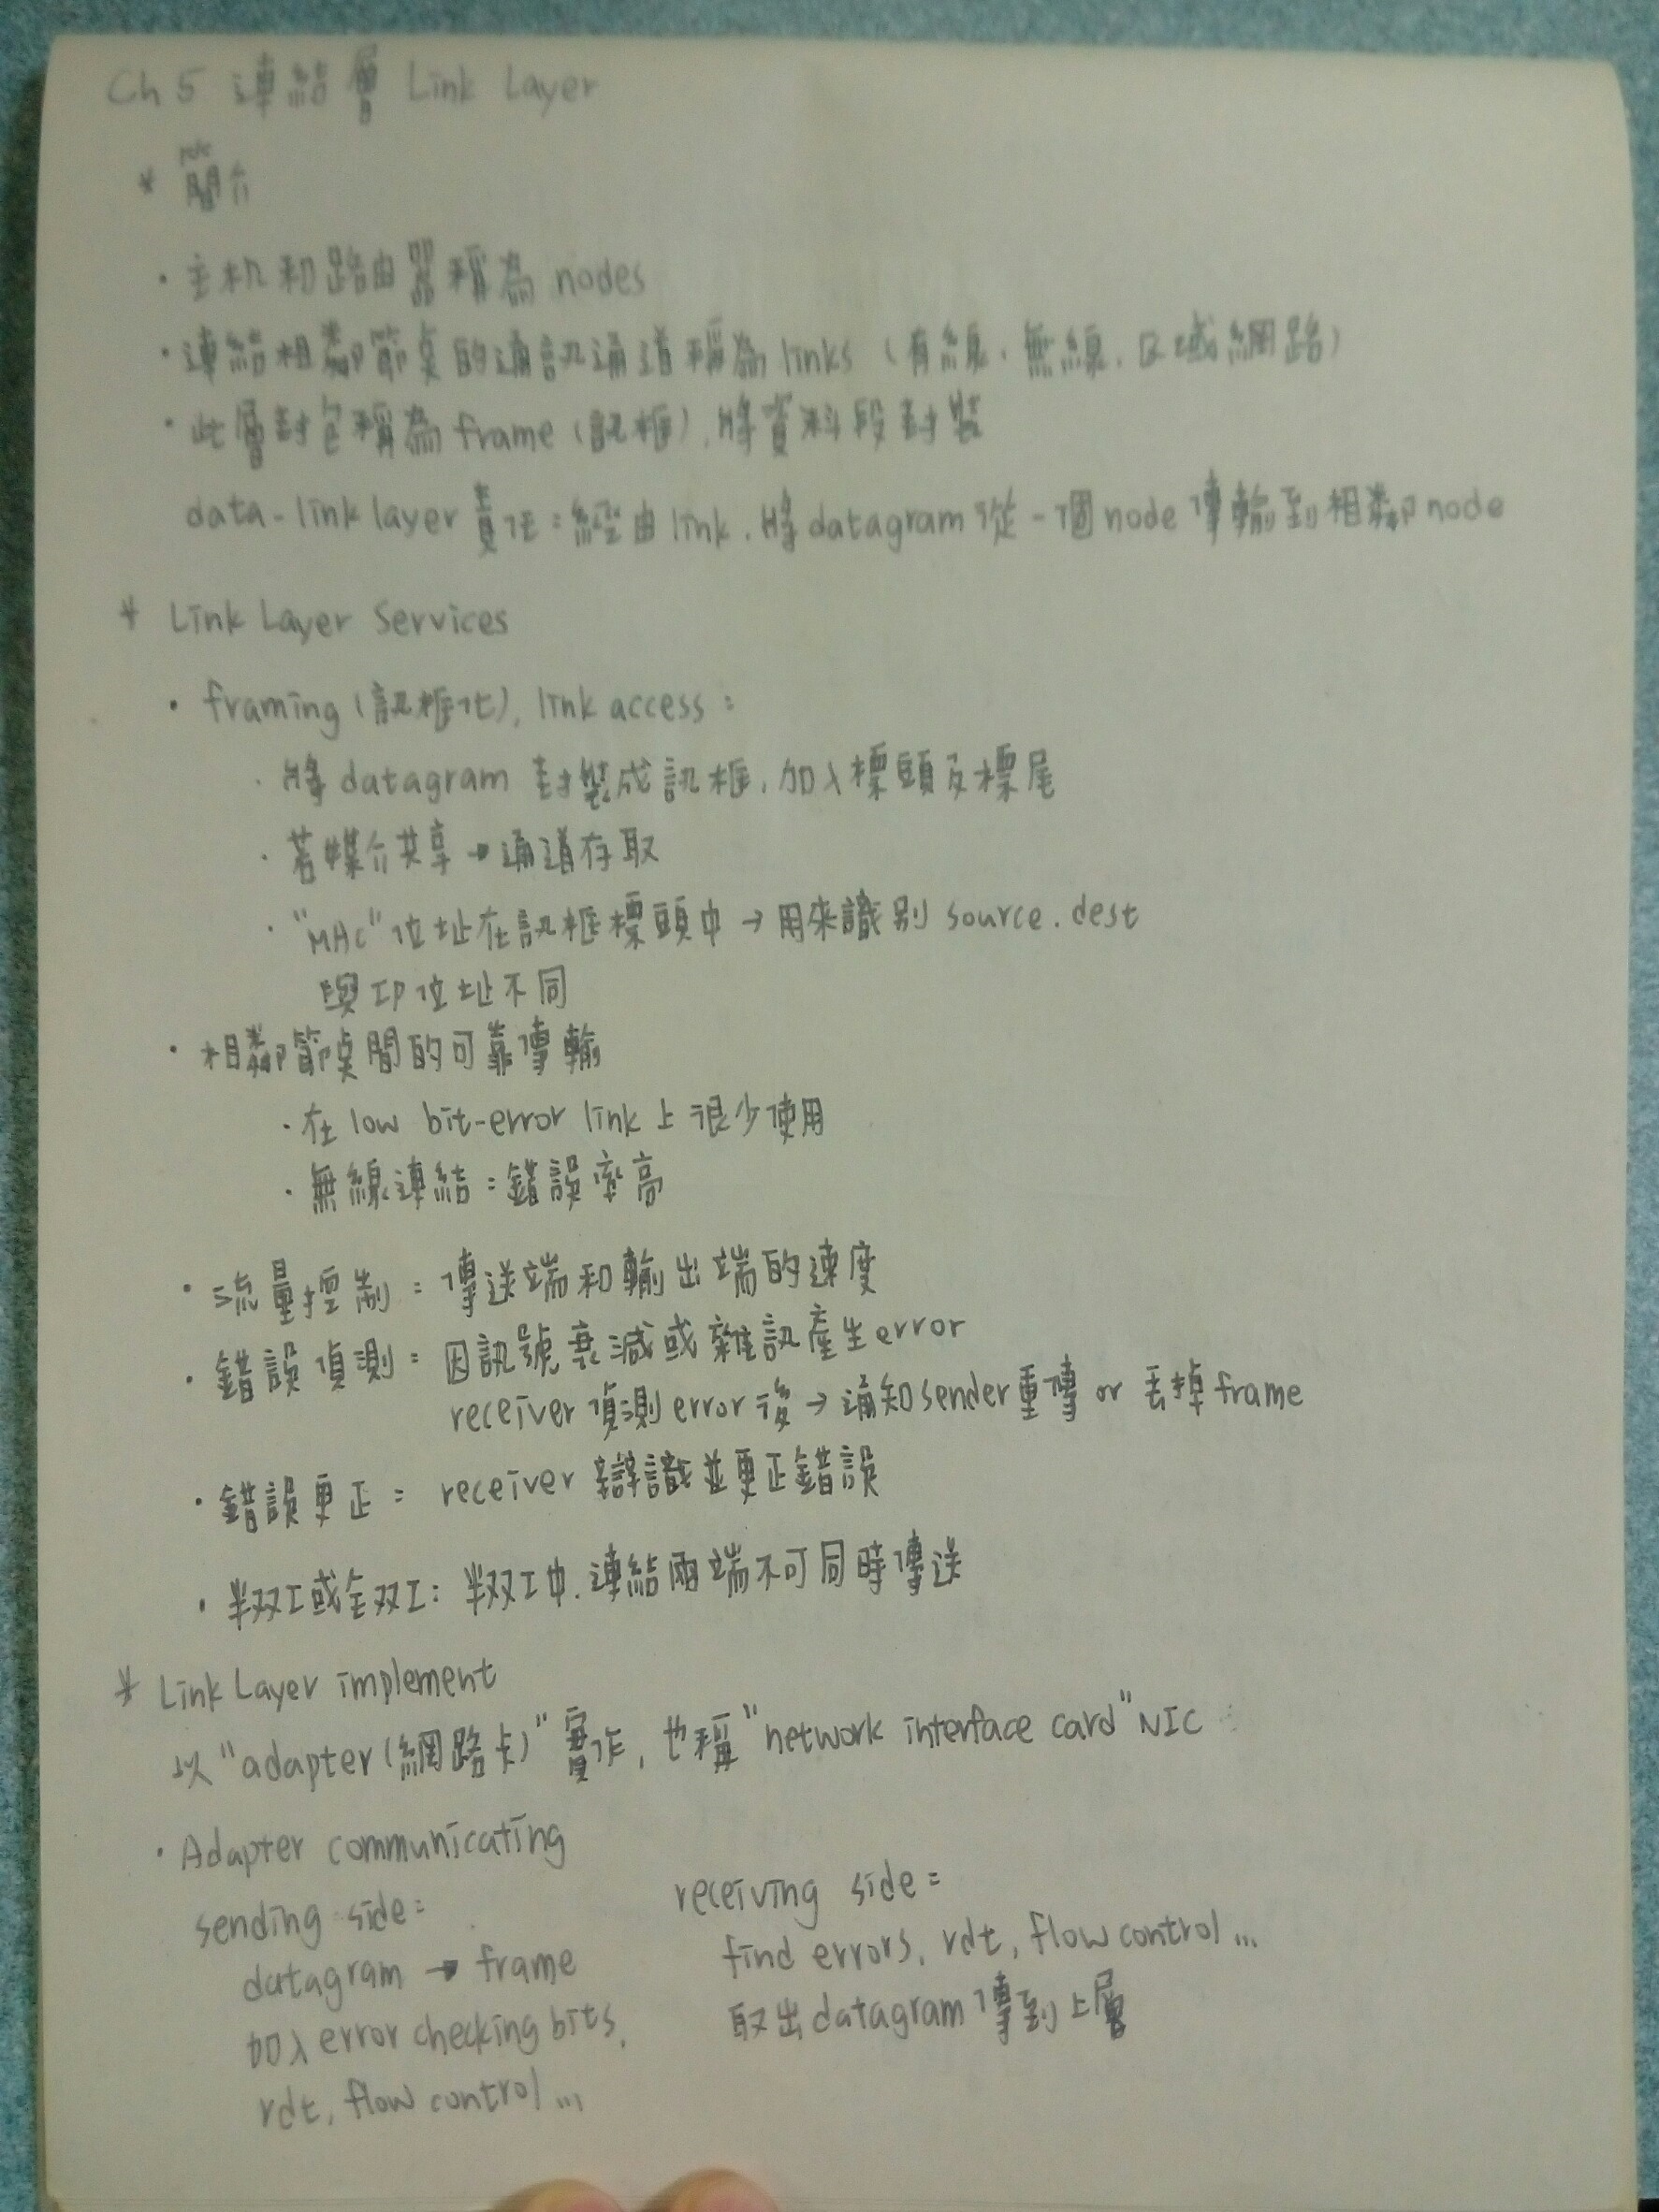 Ch 5 連結層 Link Layer
* 簡介
· 主机和路由器稱為 nodes
· 連結相鄰節桌的通訊通道稱為 links (有線、無線、区域網路)
· 此層封包稱為 frame (訊框), 將資料段封裝
data-link layer 責任: 經由 link, 將 datagram 從一個 node 傳輸到相鄰 node
* Link Layer Services
· framing (訊框化), link access:
· 將 datagram 封裝成訊框, 加入標頭及標尾
· 若媒介共享 → 通道存取
· "MAC" 位址在訊框標頭中 → 用來識別 source. dest
與 IP 位址不同
· 相鄰節桌間的可靠傳輸
· 在 low bit-error link 上很少使用
· 無線連結: 錯誤率高
· 流量控制: 傳送端和輸出端的速度
· 錯誤偵測: 因訊號衰減或雜訊產生 error
receiver 偵測 error 後 → 通知 sender 重傳 or 丟掉 frame
· 錯誤更正: receiver 辯識並更正錯誤
· 半双工或全双工: 半双工中. 連結兩端不可同時傳送
* Link Layer implement
以 "adapter (網路卡)" 實作, 也稱 "network interface card" NIC
· Adapter communicating
sending side:
datagram → frame
加入 error checking bits,
rdt, flow control ...
receiving side:
find errors, rdt, flow control ...
取出 datagram 傳到上層